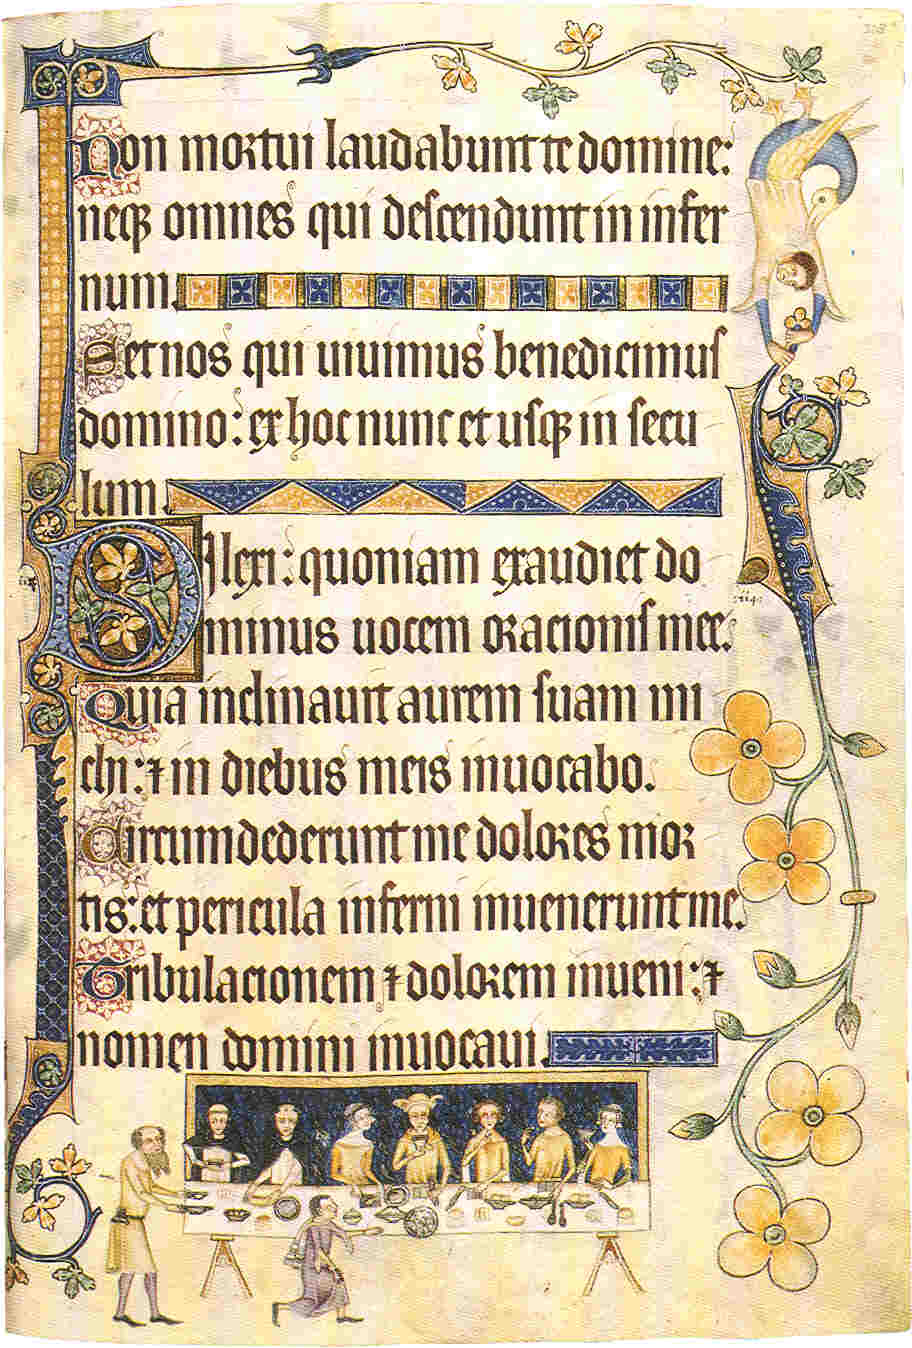 Non mortui laudabunt te domine:
neqꝫ omnes qui descendunt in infer
num.
Set nos qui uiuimus benedicimus
domino: ex hoc nunc et usqꝫ in secu
lum.
Dilexi: quoniam exaudiet do
minus uocem oracionis mee.
Quia inclinauit aurem suam mi
chi: ⁊ in diebus meis inuocabo.
Circumdederunt me dolores mor
tis: et pericula inferni inuenerunt me.
Tribulacionem ⁊ dolorem inueni: ⁊
nomen domini inuocaui.